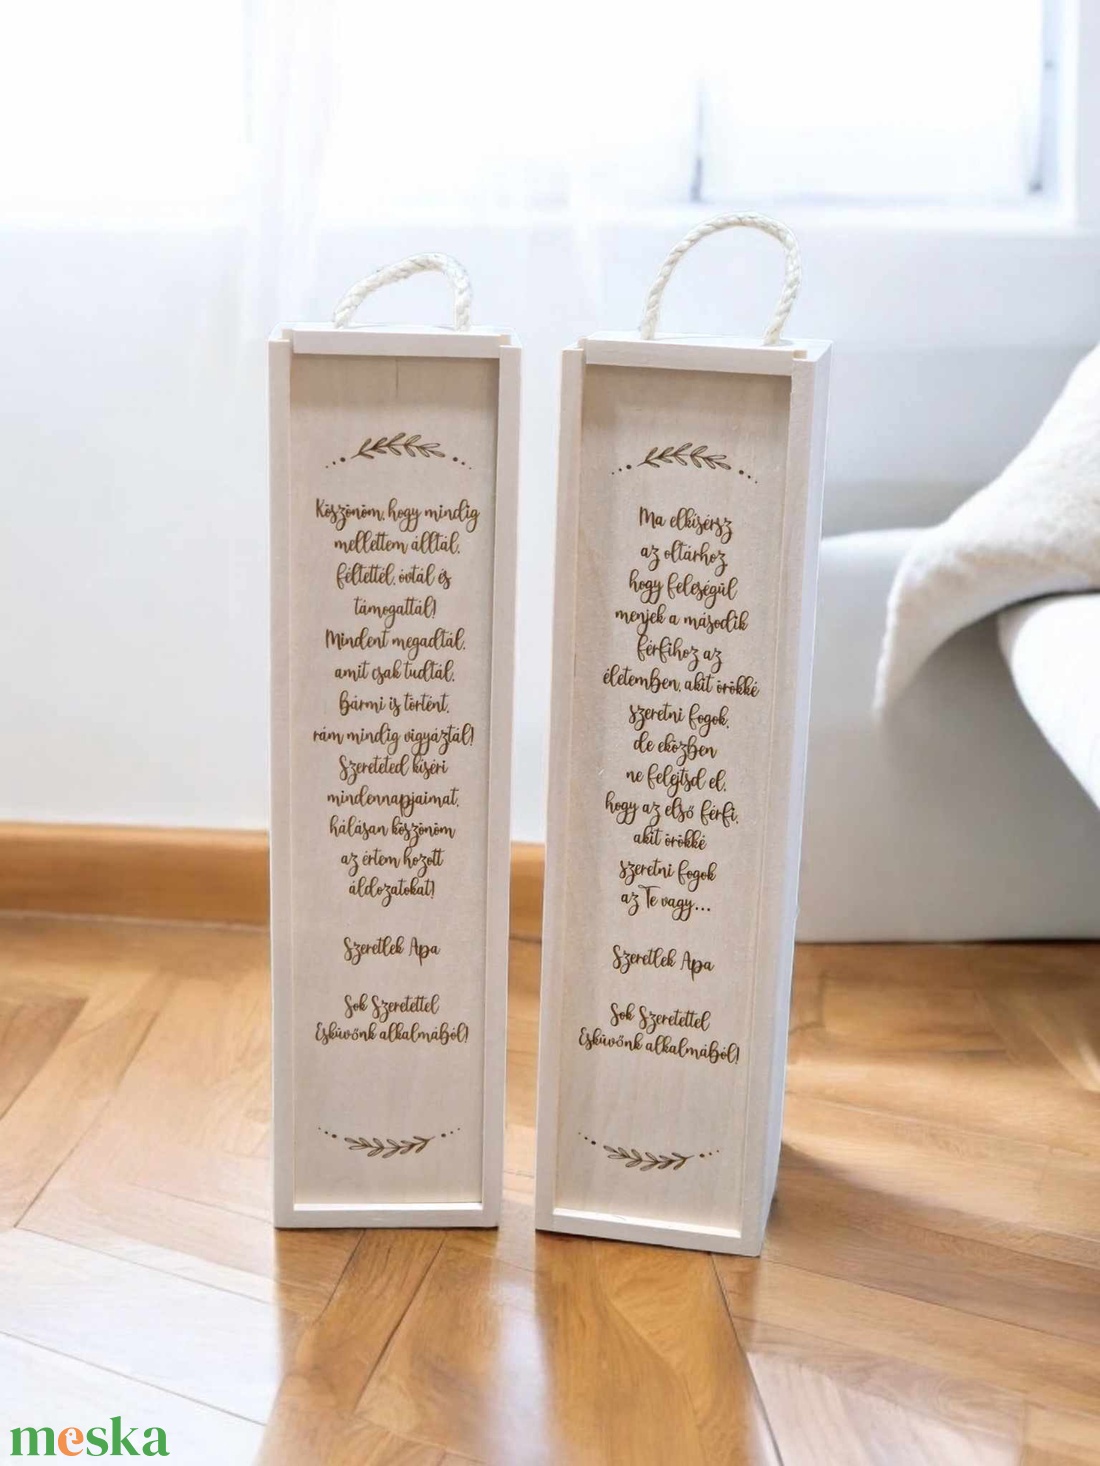 Köszönöm, hogy mindig
mellettem álltál,
féltettél, óvtál és
támogattál!
Mindent megadtál,
amit csak tudtál,
Bármi is történt,
rám mindig vigyáztál!
Szereteted kíséri
mindennapjaimat,
hálásan köszönöm
az értem hozott
áldozatokat!
Szeretlek Apa
Sok Szeretettel
Esküvőnk alkalmából!
Ma elkísérsz
az oltárhoz
hogy feleségül
menjek a második
férfihoz az
életemben, akit örökké
szeretni fogok,
de eközben
ne felejtsd el,
hogy az első férfi,
akit örökké
szeretni fogok
az Te vagy...
Szeretlek Apa
Sok Szeretettel
Esküvőnk alkalmából!
meska